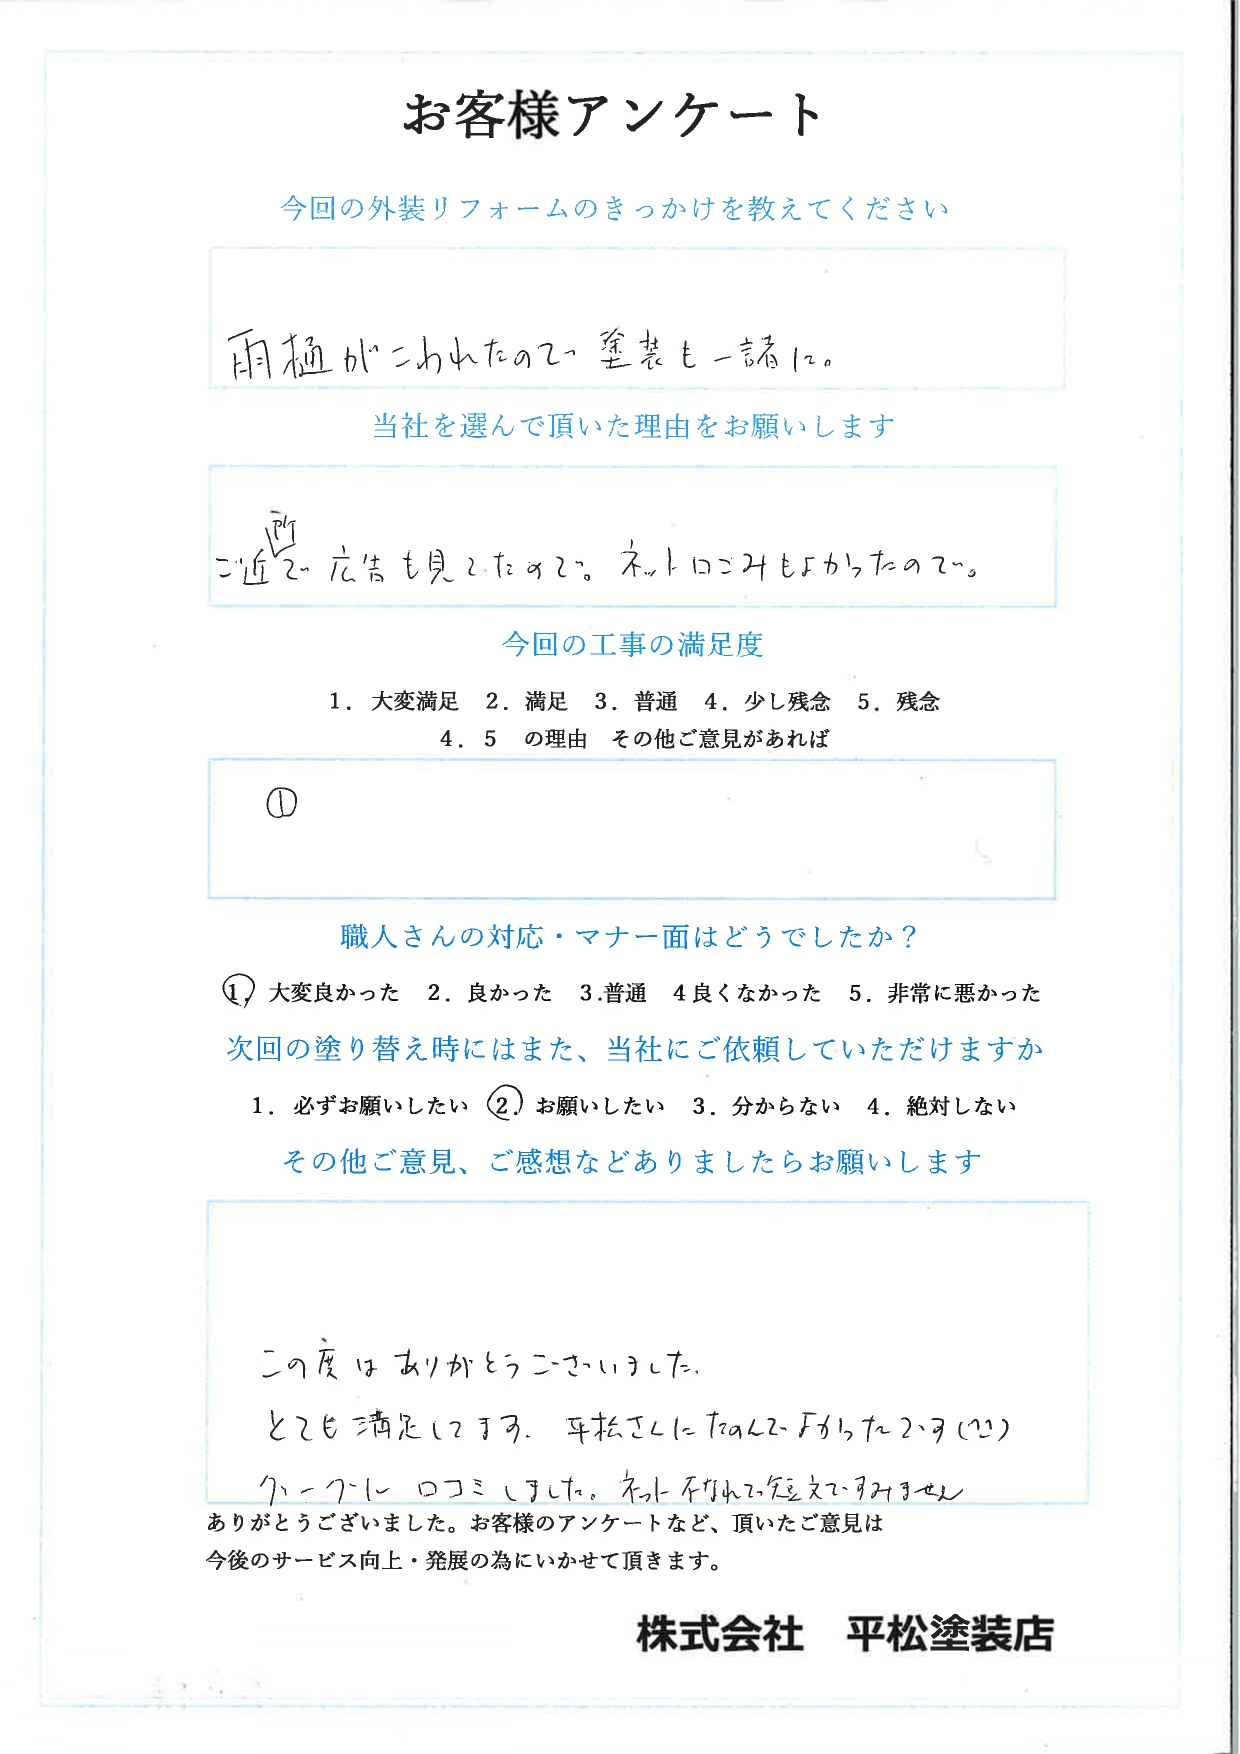 お客様アンケート
今回の外装リフォームのきっかけを教えてください
雨樋がこわれたので塗装も一諸に。
当社を選んで頂いた理由をお願いします
ご近所で広告も見てたので。ネット口ごみもよかったので。
今回の工事の満足度
1. 大変満足 2. 満足 3. 普通 4. 少し残念 5. 残念
4. 5 の理由 その他ご意見があれば
①
職人さんの対応・マナー面はどうでしたか？
1, 大変良かった 2. 良かった 3.普通 4良くなかった 5. 非常に悪かった
次回の塗り替え時にはまた、当社にご依頼していただけますか
1. 必ずお願いしたい 2. お願いしたい 3. 分からない 4. 絶対しない
その他ご意見、ご感想などありましたらお願いします
この度はありがとうございました.
とても満足してます. 平松さんにたのんでよかったです(^^)
グーグルに口コミしました。ネット不なれで短文ですみません
ありがとうございました。お客様のアンケートなど、頂いたご意見は
今後のサービス向上・発展の為にいかせて頂きます。
株式会社 平松塗装店